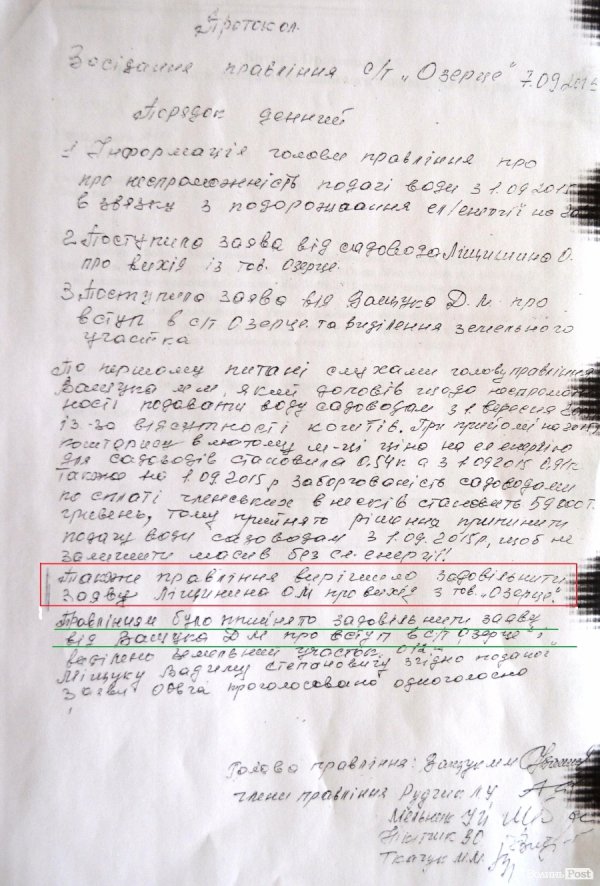 Протокол
Засідання правління с/т „Озерце" 7.09 2015
Порядок денний
1 Інформація голови правління про
про неспроможність подачі води з 1.09 2015
в звязку з подорожаання ел/енергії на
2. Поступила заява від садовода Ліщишина О.
про вихід із тов. Озерце.
3. Поступила заява від Ващука Д.М. про
вступ в с/т Озерце. та виділення земельного
участка
По першому питані слухами голову правління
Ващука м м, який доповів щодо неспромож
ності подавати воду садоводам з 1 вересня
із-за відсутності коштів. При прийомі на
кошторису в лютому м-ці ціна на ел енергію
для садоводів становила 0.54 к а з 1.09 2015 0.91к
також на 1.09 2015 р заборгованість садоводами
по сплаті членських внесків становить 59000 т.
гривень, тому прийнято рішення припинити
подачу води садоводам з 1.09.2015р, щоб не
залишити масив без ел. енергії!
Також правління вирішило задовільнити
заяву Ліщишина О М про вихід з тов. „Озерце".
Правлінням було прийнято задовільнити заяву
від Ващука Д М про вступ в с/т Озерце" і
виділено земельний участок
Міщуку Вадиму Степановичу згідно поданої
заяви проголосовано одноголосно
Голова правління: Ващук м м
члени правління Рудчик Л У
Мельник У Й
Нікітчик ВО
Ткачук М М
Волинь Post